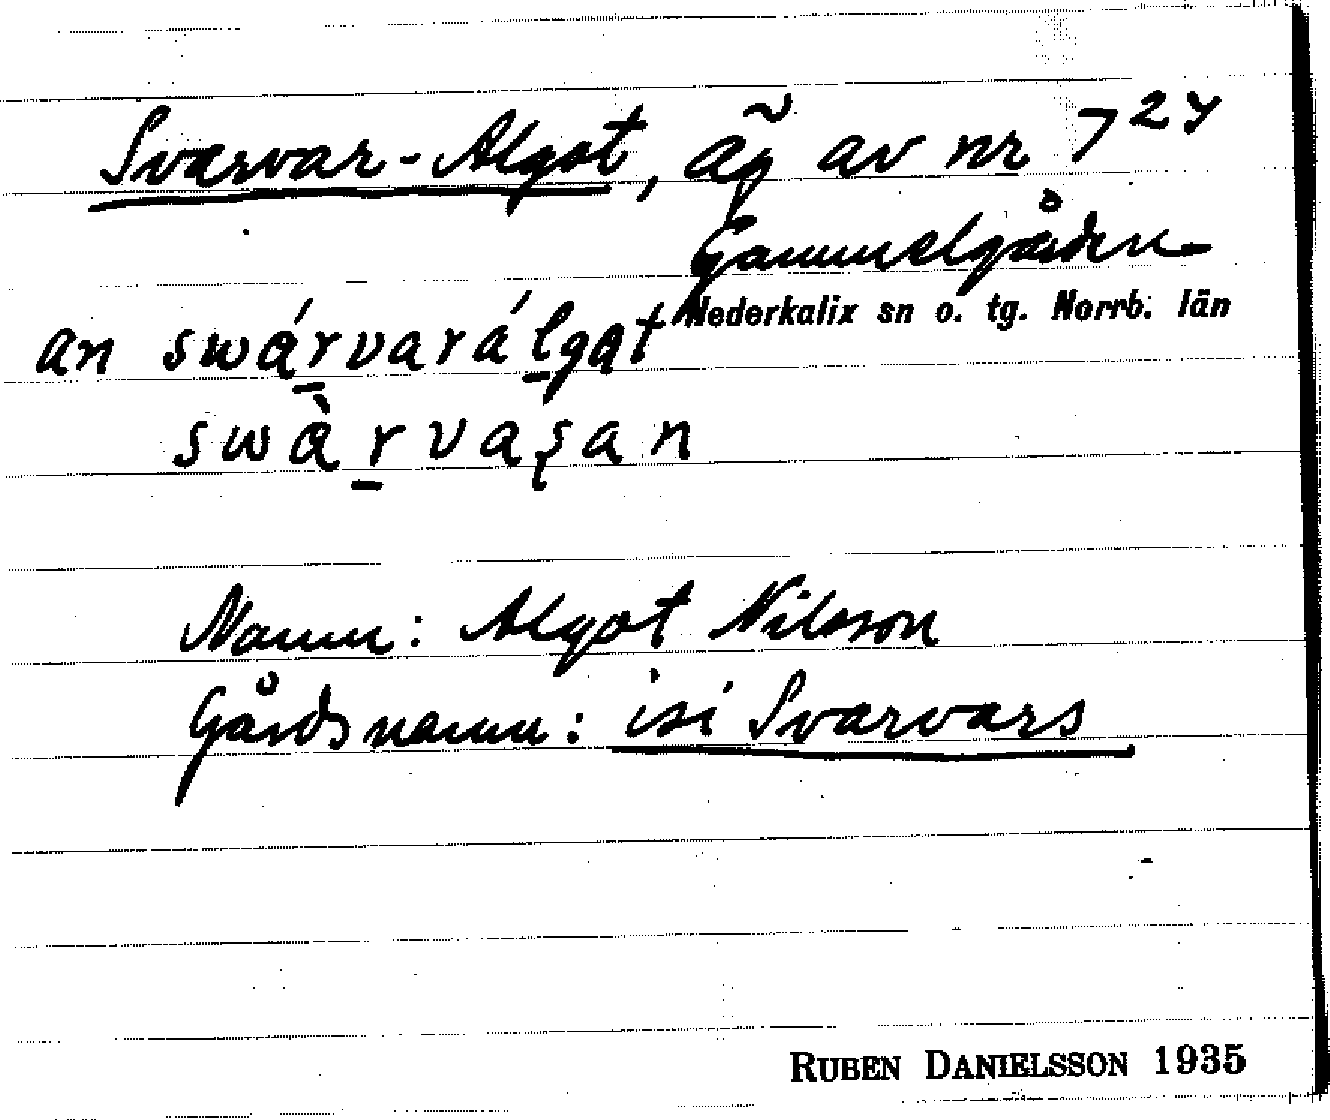 Svarvar-Algot, äg av nr 7²⁴
Gammelgården
Nederkalix sn o. tg. Norrb. län
an swárvarálgat
swàrvaşan
Namn: Algot Nilsson
Gårdsnamn: isi Svarvars
RUBEN DANIELSSON 1935